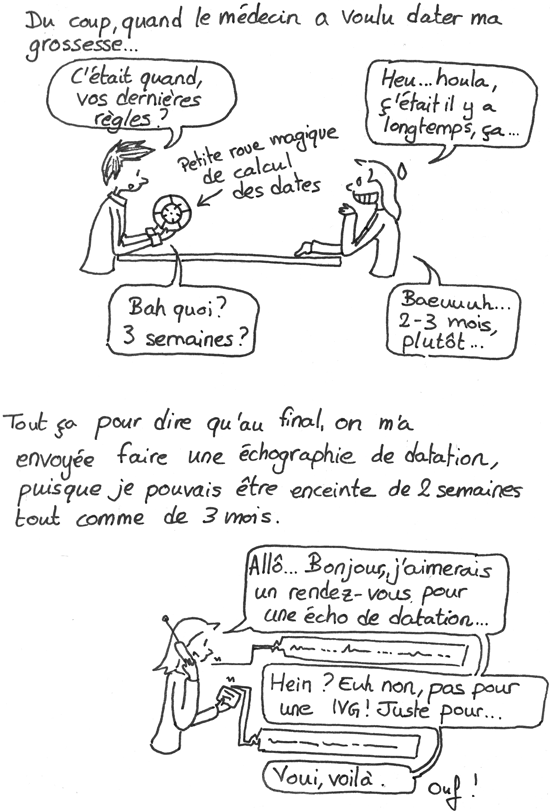 Du coup, quand le médecin a voulu dater ma
grossesse...
C'était quand,
vos dernières
règles ?
Heu... houla,
ç'était il y a
longtemps, ça...
Petite roue magique
de calcul
des dates
Bah quoi ?
3 semaines ?
Baeuuuh...
2-3 mois,
plutôt...
Tout ça pour dire qu'au final, on m'a
envoyée faire une échographie de datation,
puisque je pouvais être enceinte de 2 semaines
tout comme de 3 mois.
Allô... Bonjour, j'aimerais
un rendez-vous pour
une écho de datation...
Hein ? Euh non, pas pour
une IVG ! Juste pour...
Voui, voilà.
Ouf !